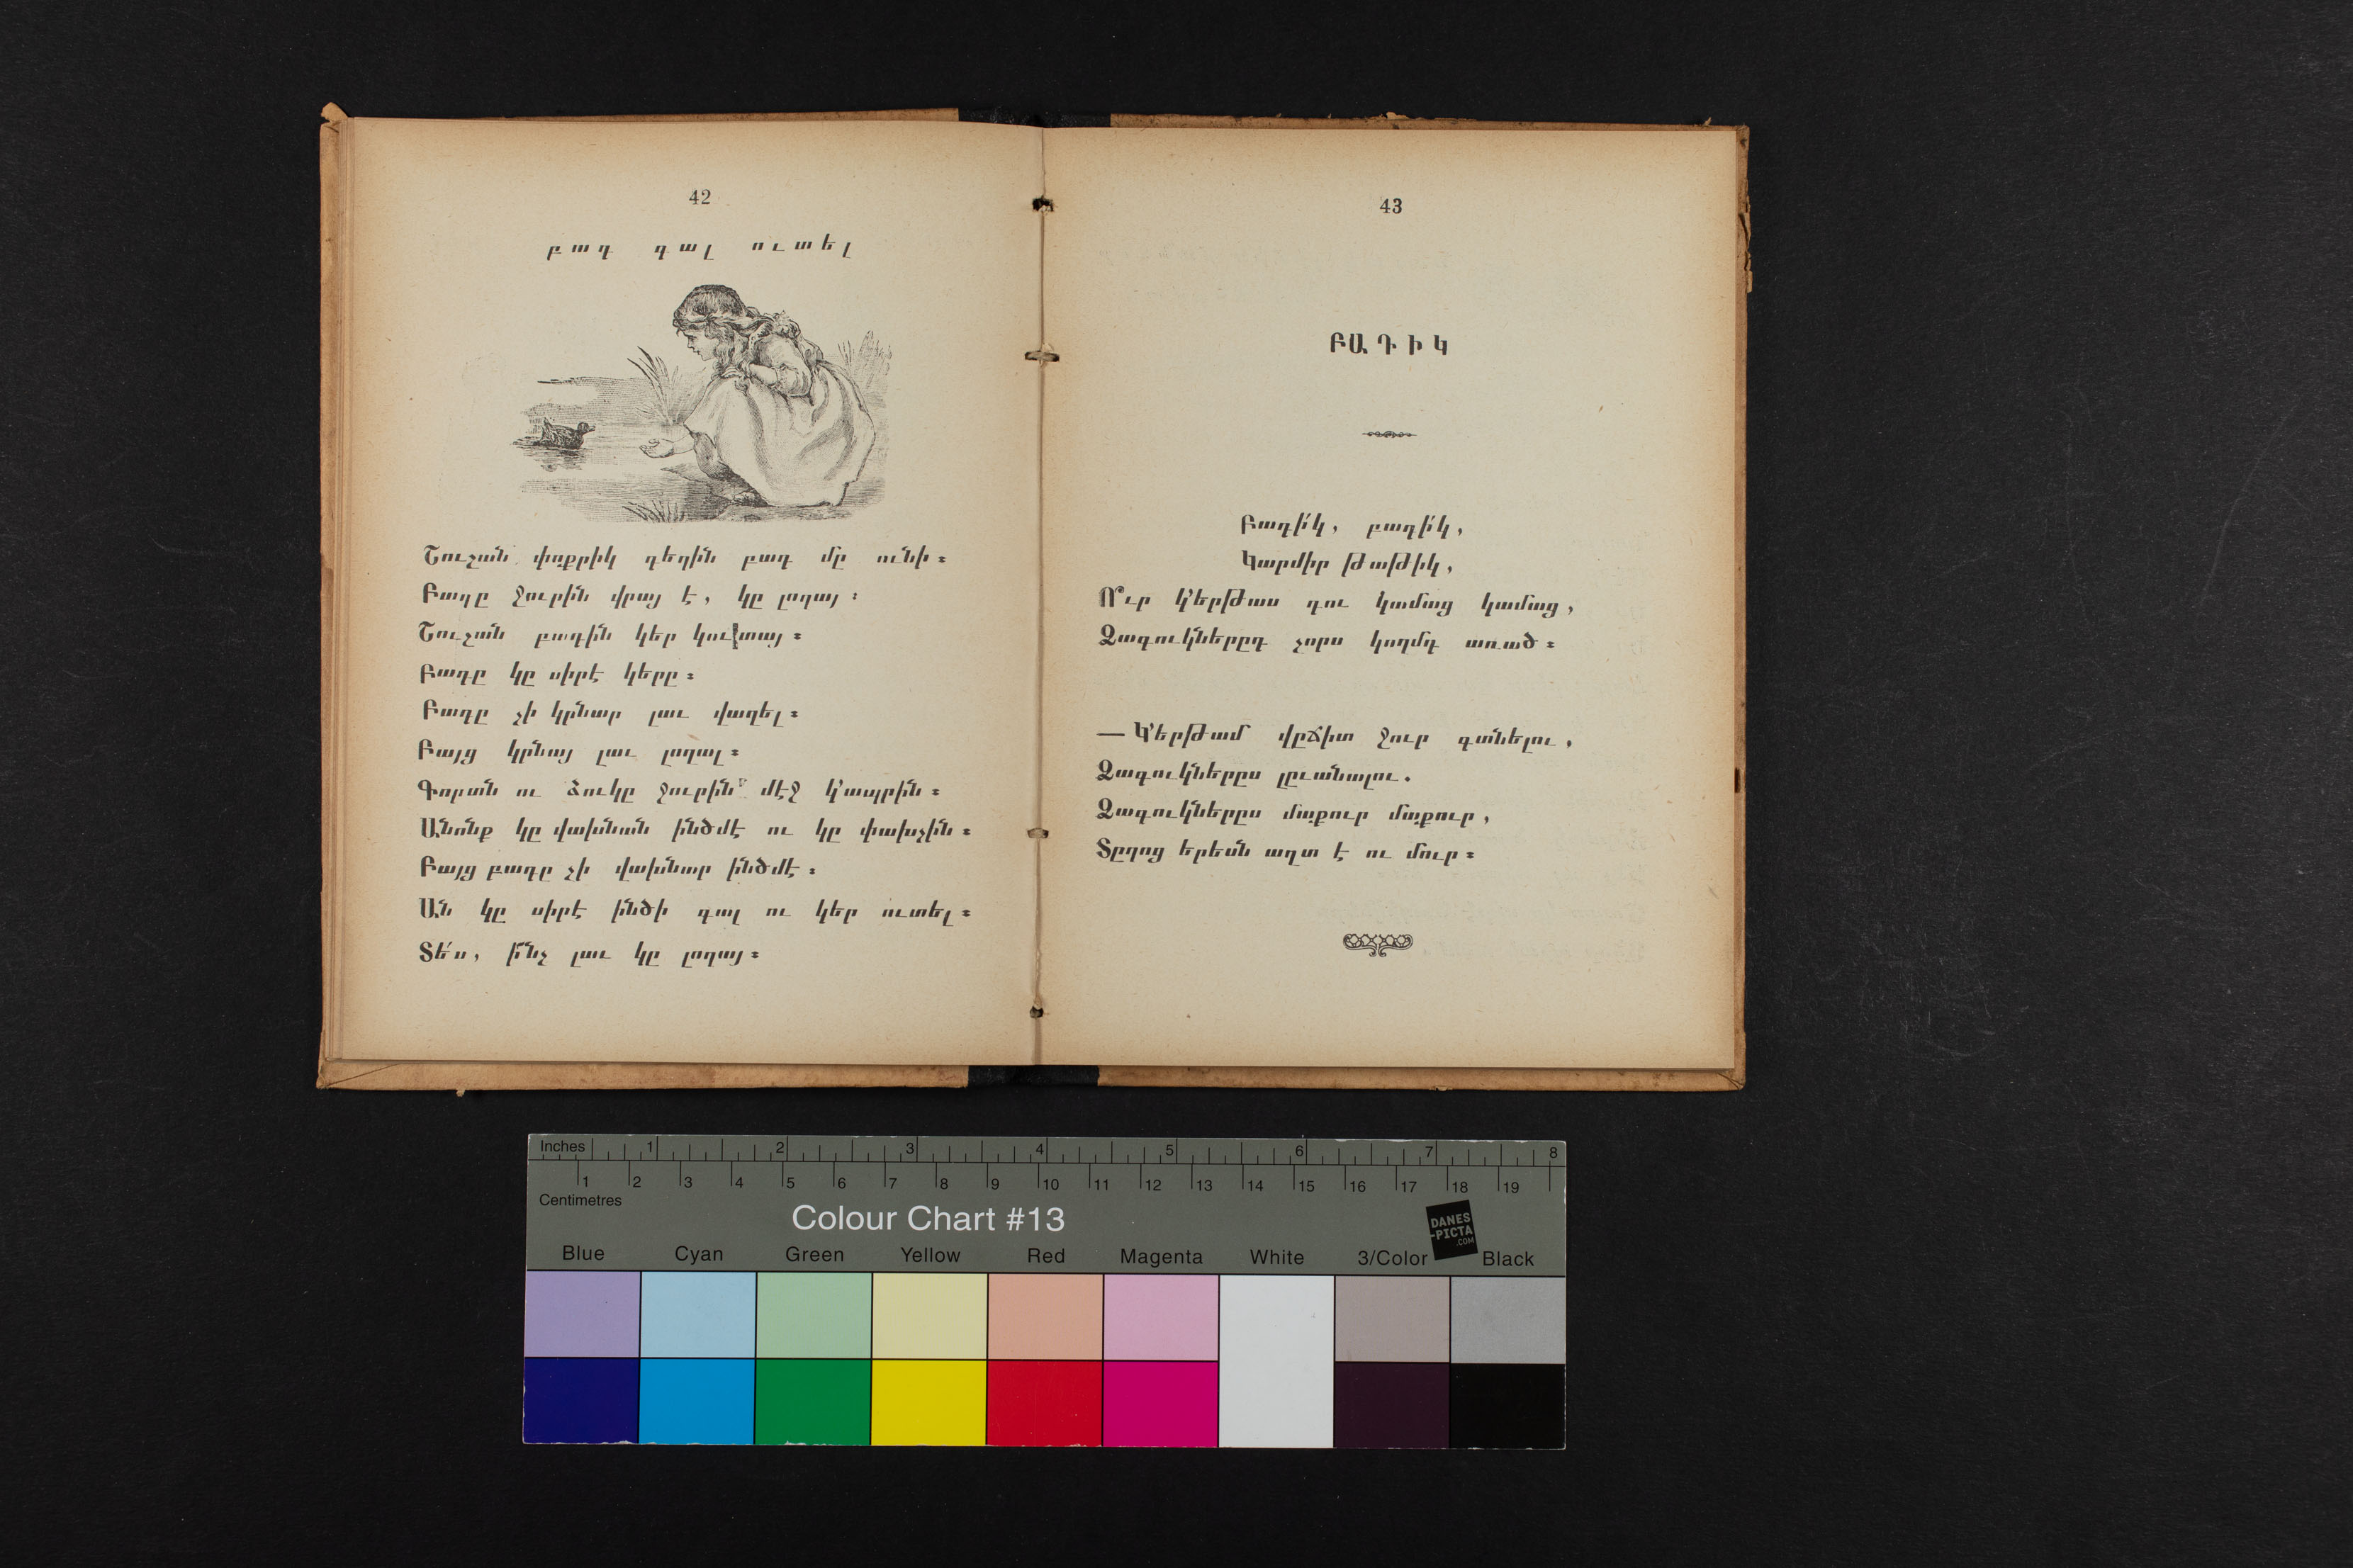 42
բադ գալ ուտել
Շուշան փոքրիկ դեղին բադ մը ունի։
Բադը ջուրին վրայ է, կը լողայ։
Շուշան բադին կեր կուտայ։
Բադը կը սիրէ կերը։
Բադը չի կրնար լաւ վազել։
Բայց կրնայ լաւ լողալ։
Գորտն ու ձուկը ջուրին մէջ կ՚ապրին։
Անոնք կը վախնան ինծմէ ու կը փախչին։
Բայց բադը չի վախնար ինծմէ։
Ան կը սիրէ ինծի գալ ու կեր ուտել։
Տե՛ս, ի՜նչ լաւ կը լողայ։
43
ԲԱԴԻԿ
Բադի՛կ, բադի՛կ,
Կարմիր թաթիկ,
Ո՞ւր կ՚երթաս դու կամաց կամաց,
Ձագուկներըդ չորս կողմդ առած։
— Կ՚երթամ վըճիտ ջուր գտնելու,
Ձագուկներըս լըւանալու.
Ձագուկներըս մաքուր մաքուր,
Տըղոց երեսն աղտ է ու մուր։
Inches 1 2 3 4 5 6 7 8
1 2 3 4 5 6 7 8 9 10 11 12 13 14 15 16 17 18 19
Centimetres
Colour Chart #13
DANES
-PICTA
.COM
Blue Cyan Green Yellow Red Magenta White 3/Color Black